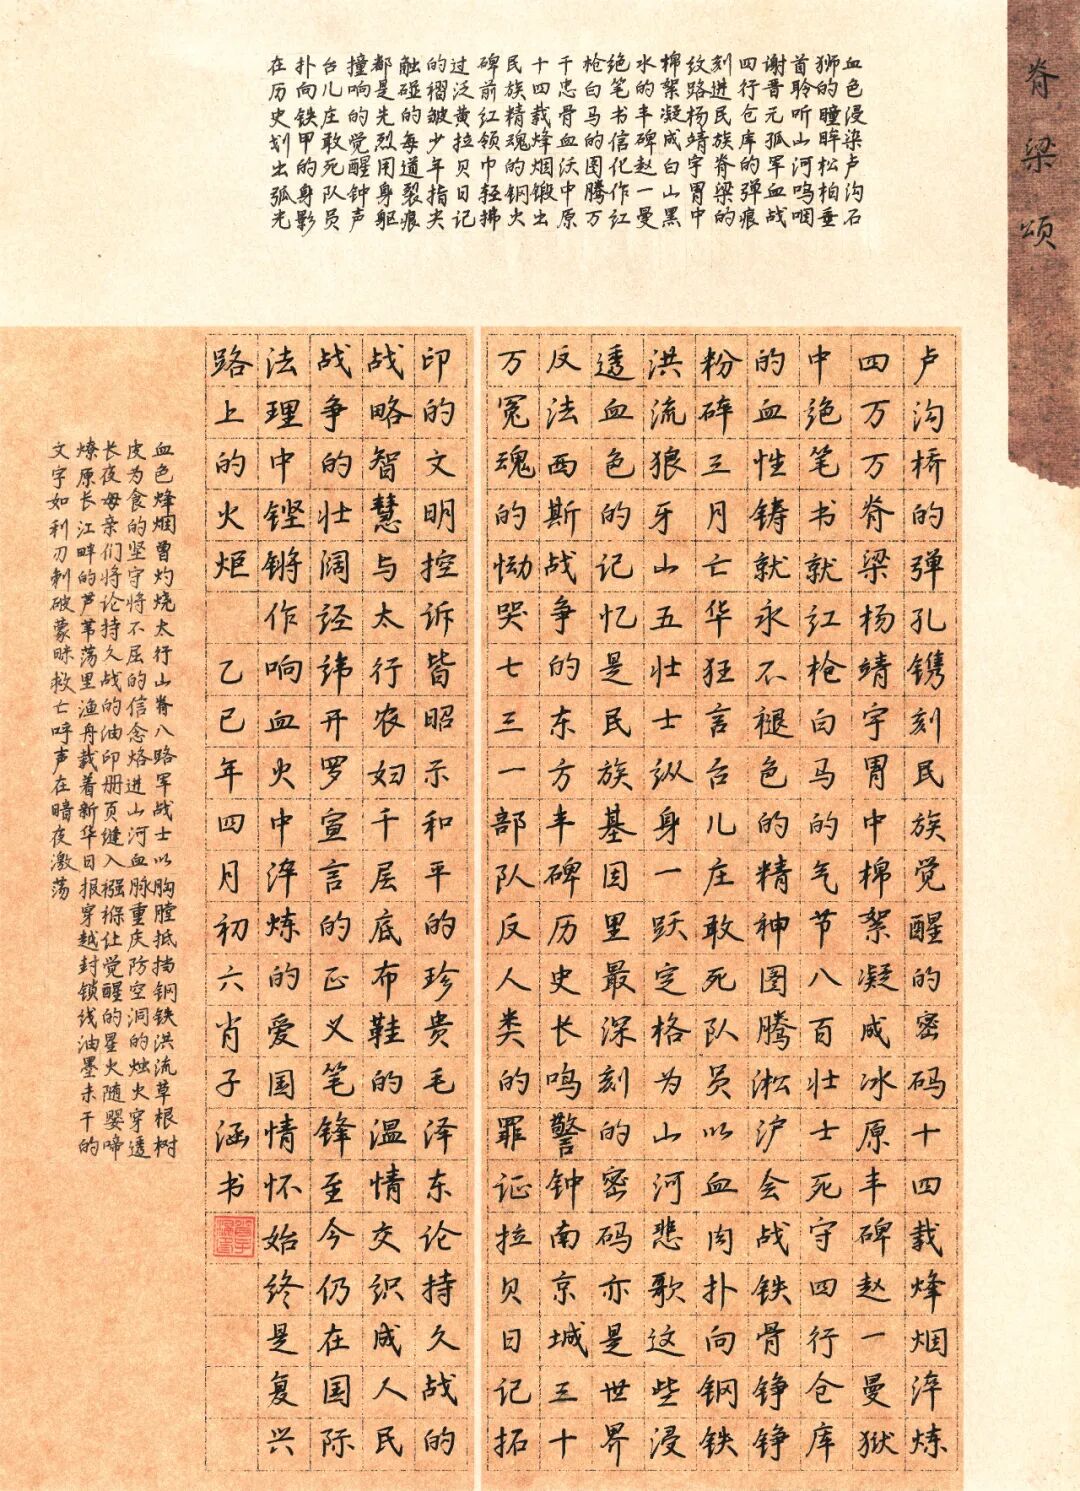 脊梁颂
血色浸染卢沟石
狮的瞳眸松柏垂
首聆听山河呜咽
谢晋元孤军血战
四行仓库的弹痕
刻进民族脊梁的
纹路杨靖宇胃中
棉絮凝成白山黑
水的丰碑赵一曼
绝笔书信化作红
枪白马的图腾万
千忠骨血沃中原
十四载烽烟锻出
民族精魂的钢火
碑前红领巾轻拂
过泛黄拉贝日记
的褶皱少年指尖
触碰的每道裂痕
都是先烈用身躯
撞响的觉醒钟声
台儿庄敢死队员
扑向铁甲的身影
在历史划出弧光
卢沟桥的弹孔镌刻民族觉醒的密码十四载烽烟淬炼
四万万脊梁杨靖宇胃中棉絮凝成冰原丰碑赵一曼狱
中绝笔书就红枪白马的气节八百壮士死守四行仓库
的血性铸就永不褪色的精神图腾淞沪会战铁骨铮铮
粉碎三月亡华狂言台儿庄敢死队员以血肉扑向钢铁
洪流狼牙山五壮士纵身一跃定格为山河悲歌这些浸
透血色的记忆是民族基因里最深刻的密码亦是世界
反法西斯战争的东方丰碑历史长鸣警钟南京城三十
万冤魂的恸哭七三一部队反人类的罪证拉贝日记拓
印的文明控诉皆昭示和平的珍贵毛泽东论持久战的
战略智慧与太行农妇千层底布鞋的温情交织成人民
战争的壮阔经纬开罗宣言的正义笔锋至今仍在国际
法理中铿锵作响血火中淬炼的爱国情怀始终是复兴
路上的火炬 乙巳年四月初六肖子涵书
血色烽烟曾灼烧太行山脊八路军战士以胸膛抵挡钢铁洪流草根树
皮为食的坚守将不屈的信念烙进山河血脉重庆防空洞的烛火穿透
长夜母亲们将论持久战的油印册页缝入襁褓让觉醒的星火随婴啼
燎原长江畔的芦苇荡里渔舟载着新华日报穿越封锁线油墨未干的
文字如利刃刺破蒙昧救亡呼声在暗夜激荡